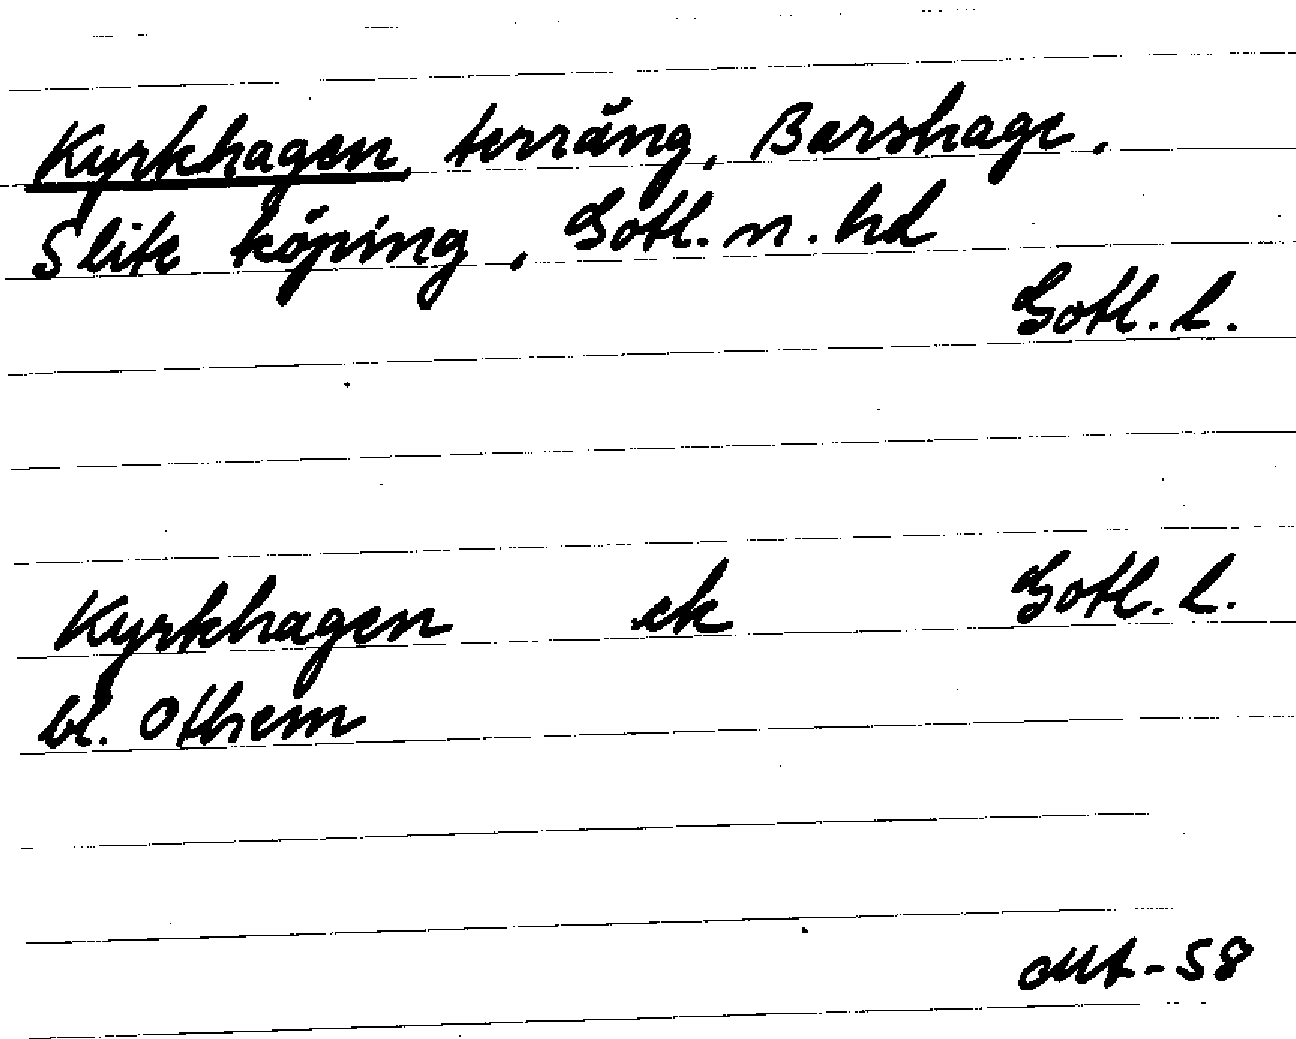 Kyrkhagen, terräng, Barshage,
Slite köping, Gotl. n. hd
Gotl. l.
Kyrkhagen ek Gotl. l.
bl. Othem
-58